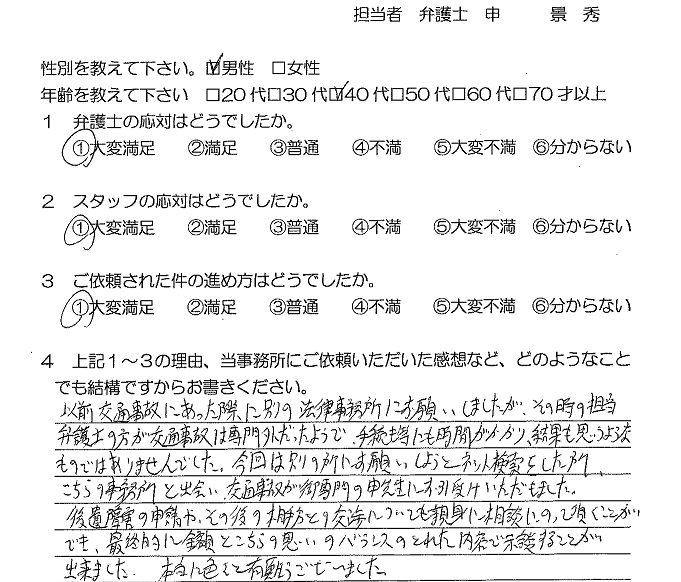 担当者 弁護士 申 景 秀
性別を教えて下さい。☑男性 □女性
年齢を教えて下さい □20代□30代☑40代□50代□60代□70才以上
1 弁護士の応対はどうでしたか。
①大変満足 ②満足 ③普通 ④不満 ⑤大変不満 ⑥分からない
2 スタッフの応対はどうでしたか。
①大変満足 ②満足 ③普通 ④不満 ⑤大変不満 ⑥分からない
3 ご依頼された件の進め方はどうでしたか。
①大変満足 ②満足 ③普通 ④不満 ⑤大変不満 ⑥分からない
4 上記1~3の理由、当事務所にご依頼いただいた感想など、どのようなこと
でも結構ですからお書きください。
以前交通事故にあった際に別の法律事務所にお願いしましたが、その時の担当
弁護士の方が交通事故は専門外だったようで、手続き等にも時間がかかり、結果も思うような
ものではありませんでした。今回は別の所にお願いしようとネット検索をした所、
こちらの事務所と出会い、交通事故が御専門の申先生にお引受けいただきました。
後遺障害の申請や、その後の相手方との交渉についても親身に相談にのって頂くことが
でき、最終的に金額とこちらの思いのバランスのとれた内容で示談することが
出来ました。本当に色々と有難うございました。